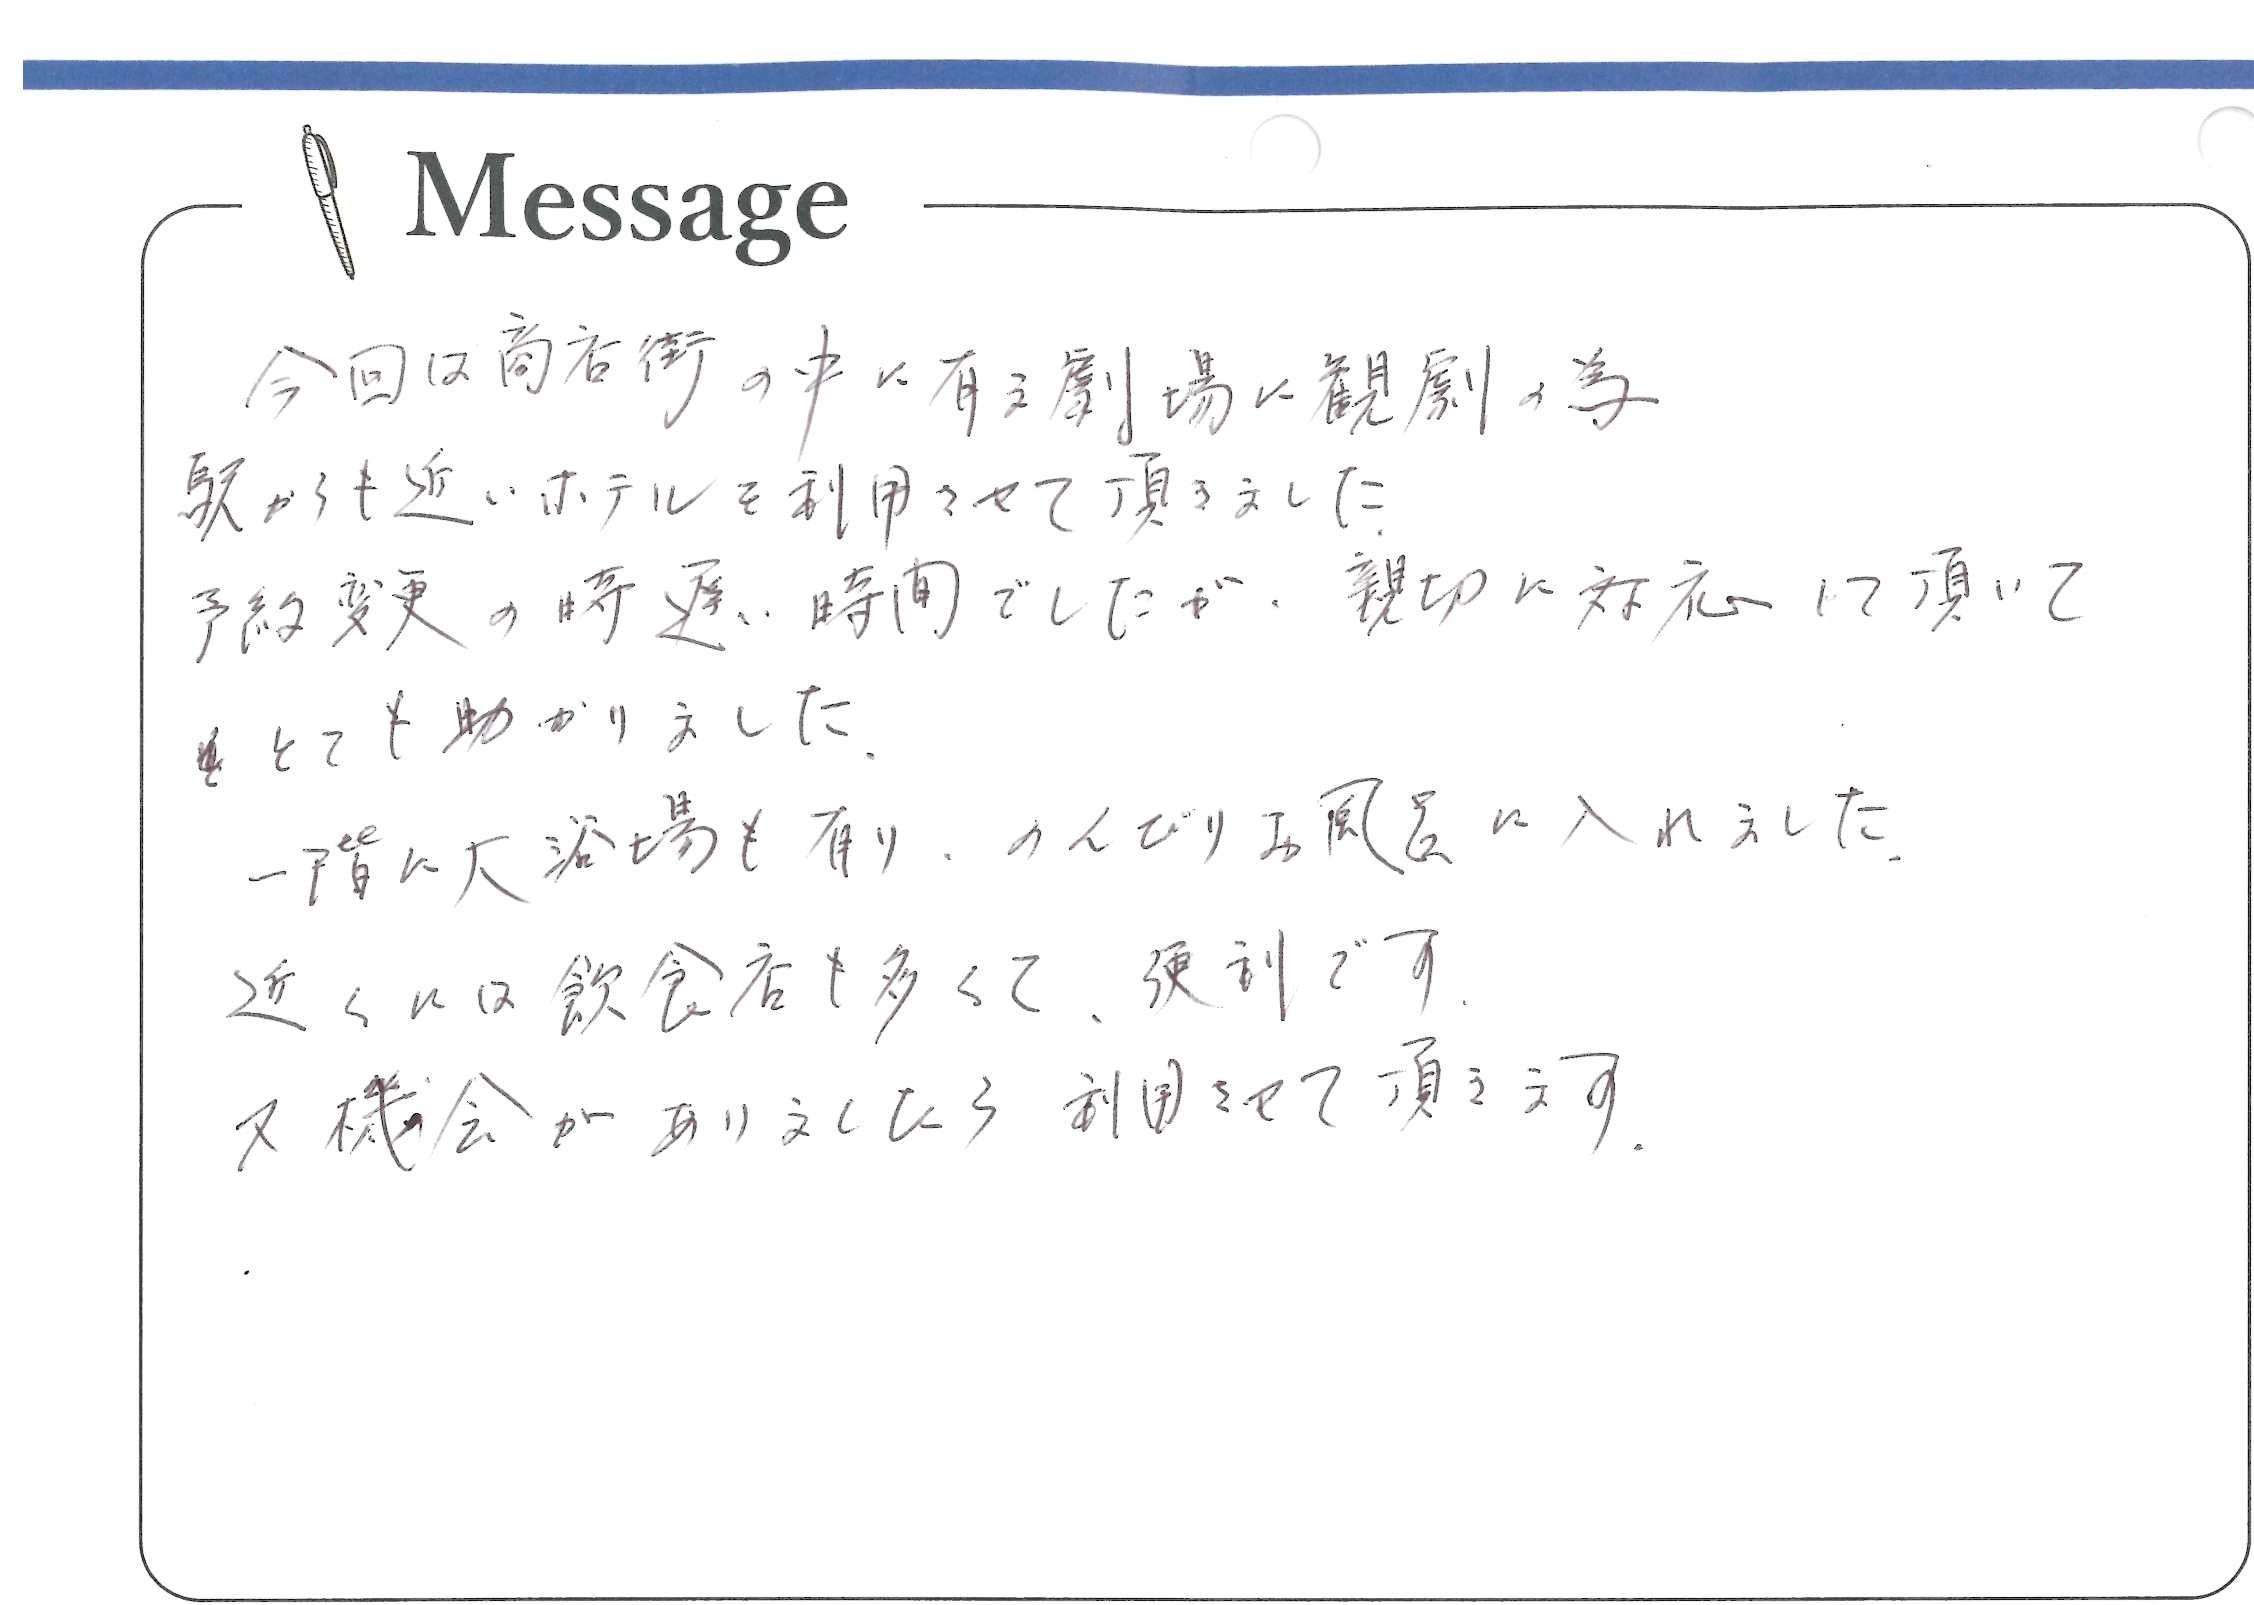 Message
今回は商店街の中に有る劇場に観劇の為
駅からも近いホテルを利用させて頂きました.
予約変更の時遅い時間でしたが、親切に対応して頂いて
とても助かりました.
一階に大浴場も有り、のんびりお風呂に入れました.
近くには飲食店も多くて、便利です.
又機会がありましたら利用させて頂きます.